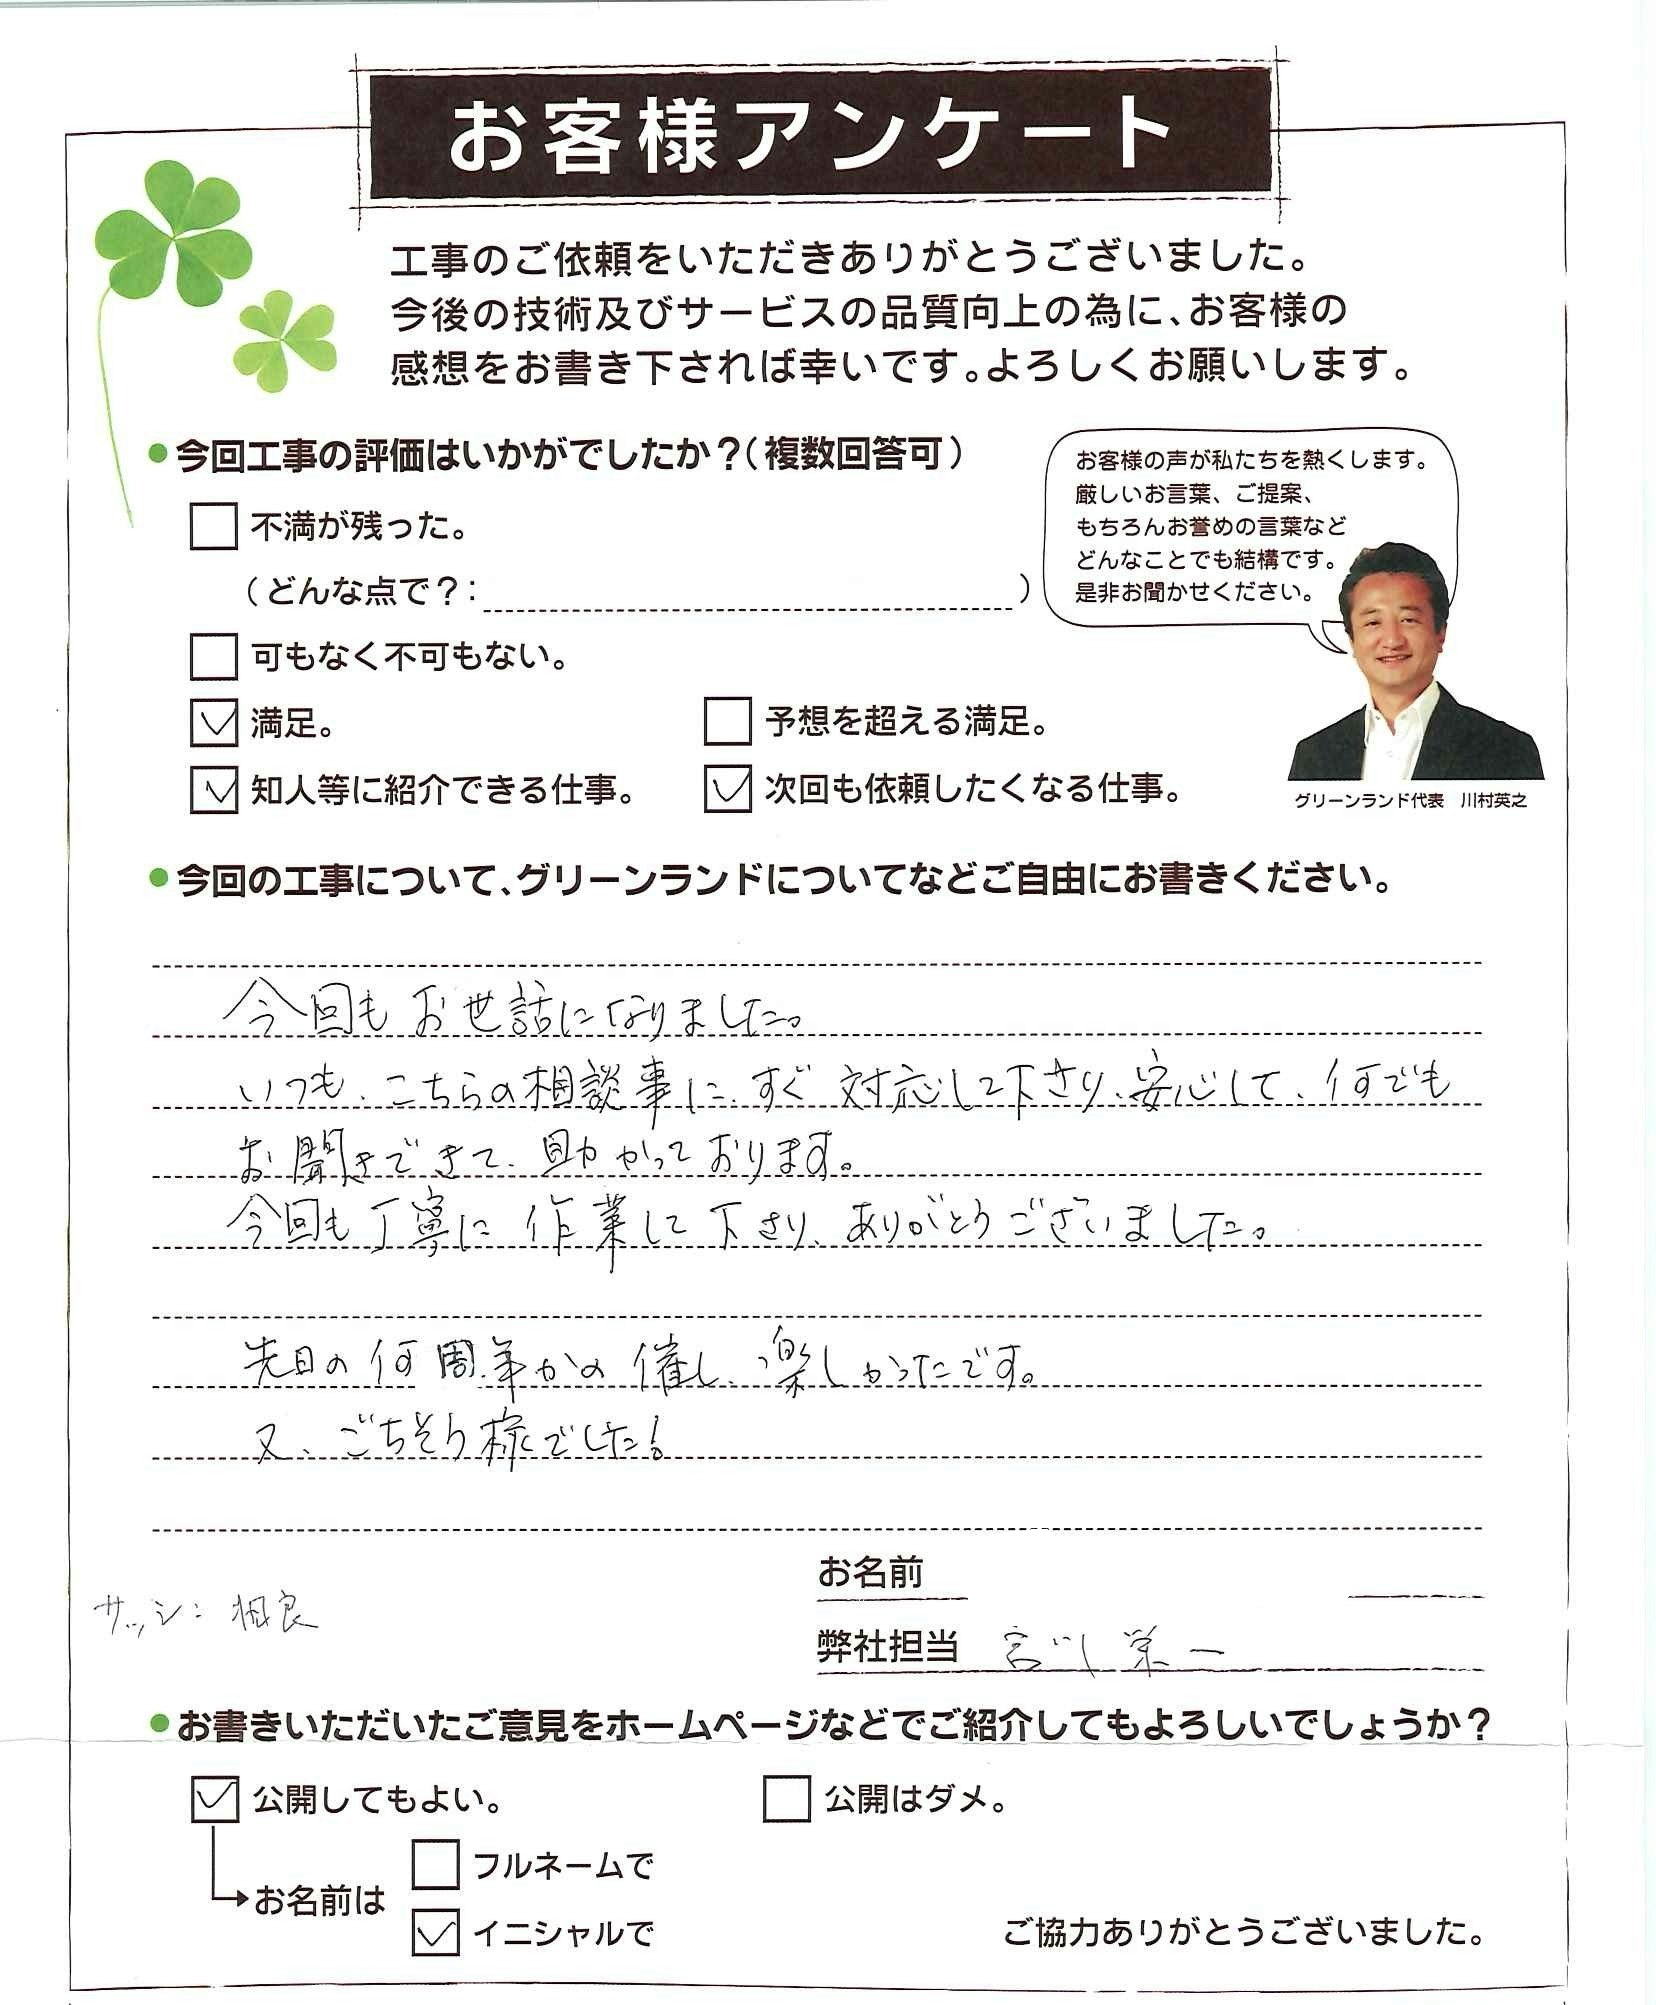 お客様アンケート
工事のご依頼をいただきありがとうございました。
今後の技術及びサービスの品質向上の為に、お客様の
感想をお書き下されば幸いです。よろしくお願いします。
●今回工事の評価はいかがでしたか？（複数回答可）
お客様の声が私たちを熱くします。
厳しいお言葉、ご提案、
もちろんお誉めの言葉など
どんなことでも結構です。
是非お聞かせください。
不満が残った。
（どんな点で？： ）
可もなく不可もない。
満足。
予想を超える満足。
知人等に紹介できる仕事。
次回も依頼したくなる仕事。
グリーンランド代表　川村英之
●今回の工事について、グリーンランドについてなどご自由にお書きください。
今回もお世話になりました。
いつも、こちらの相談事に、すぐ対応して下さり、安心して、何でも
お聞きできて、助かっております。
今回も丁寧に作業して下さり、ありがとうございました。
先日の何周年かの催し、楽しかったです。
又、ごちそう様でした！
お名前
サッシ：相良
弊社担当 宮川栄一
●お書きいただいたご意見をホームページなどでご紹介してもよろしいでしょうか？
公開してもよい。
公開はダメ。
フルネームで
お名前は
イニシャルで
ご協力ありがとうございました。